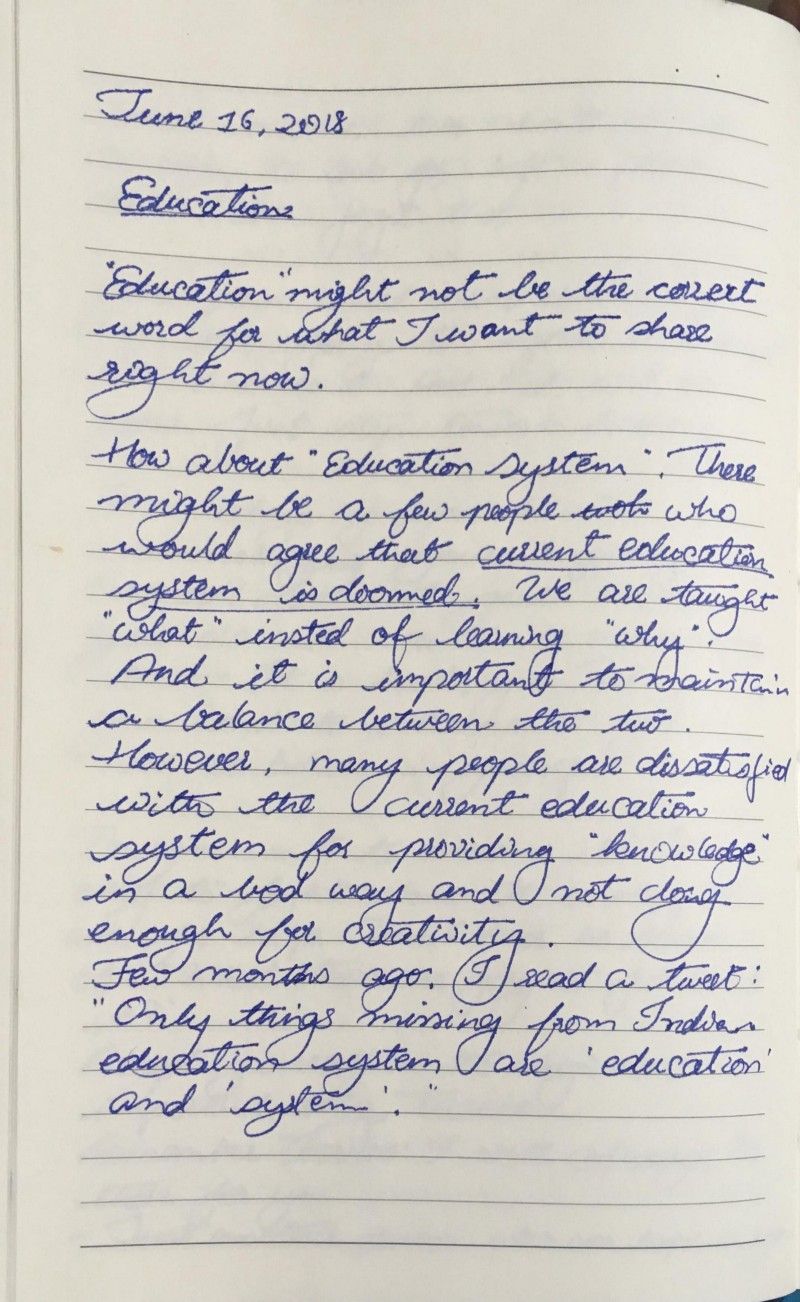 June 16, 2018
Education
"Education" might not be the correct
word for what I want to share
right now.
How about "Education system". There
might be a few people who
would agree that current education
system is doomed. We are taught
"what" insted of learning "why".
And it is important to maintain
a balance between the two.
However, many people are dissatisfied
with the current education
system for providing "knowledge"
in a bad way and not doing
enough for creativity.
Few months ago. I read a tweet:
"Only things missing from Indian
education system are 'education'
and 'system'."